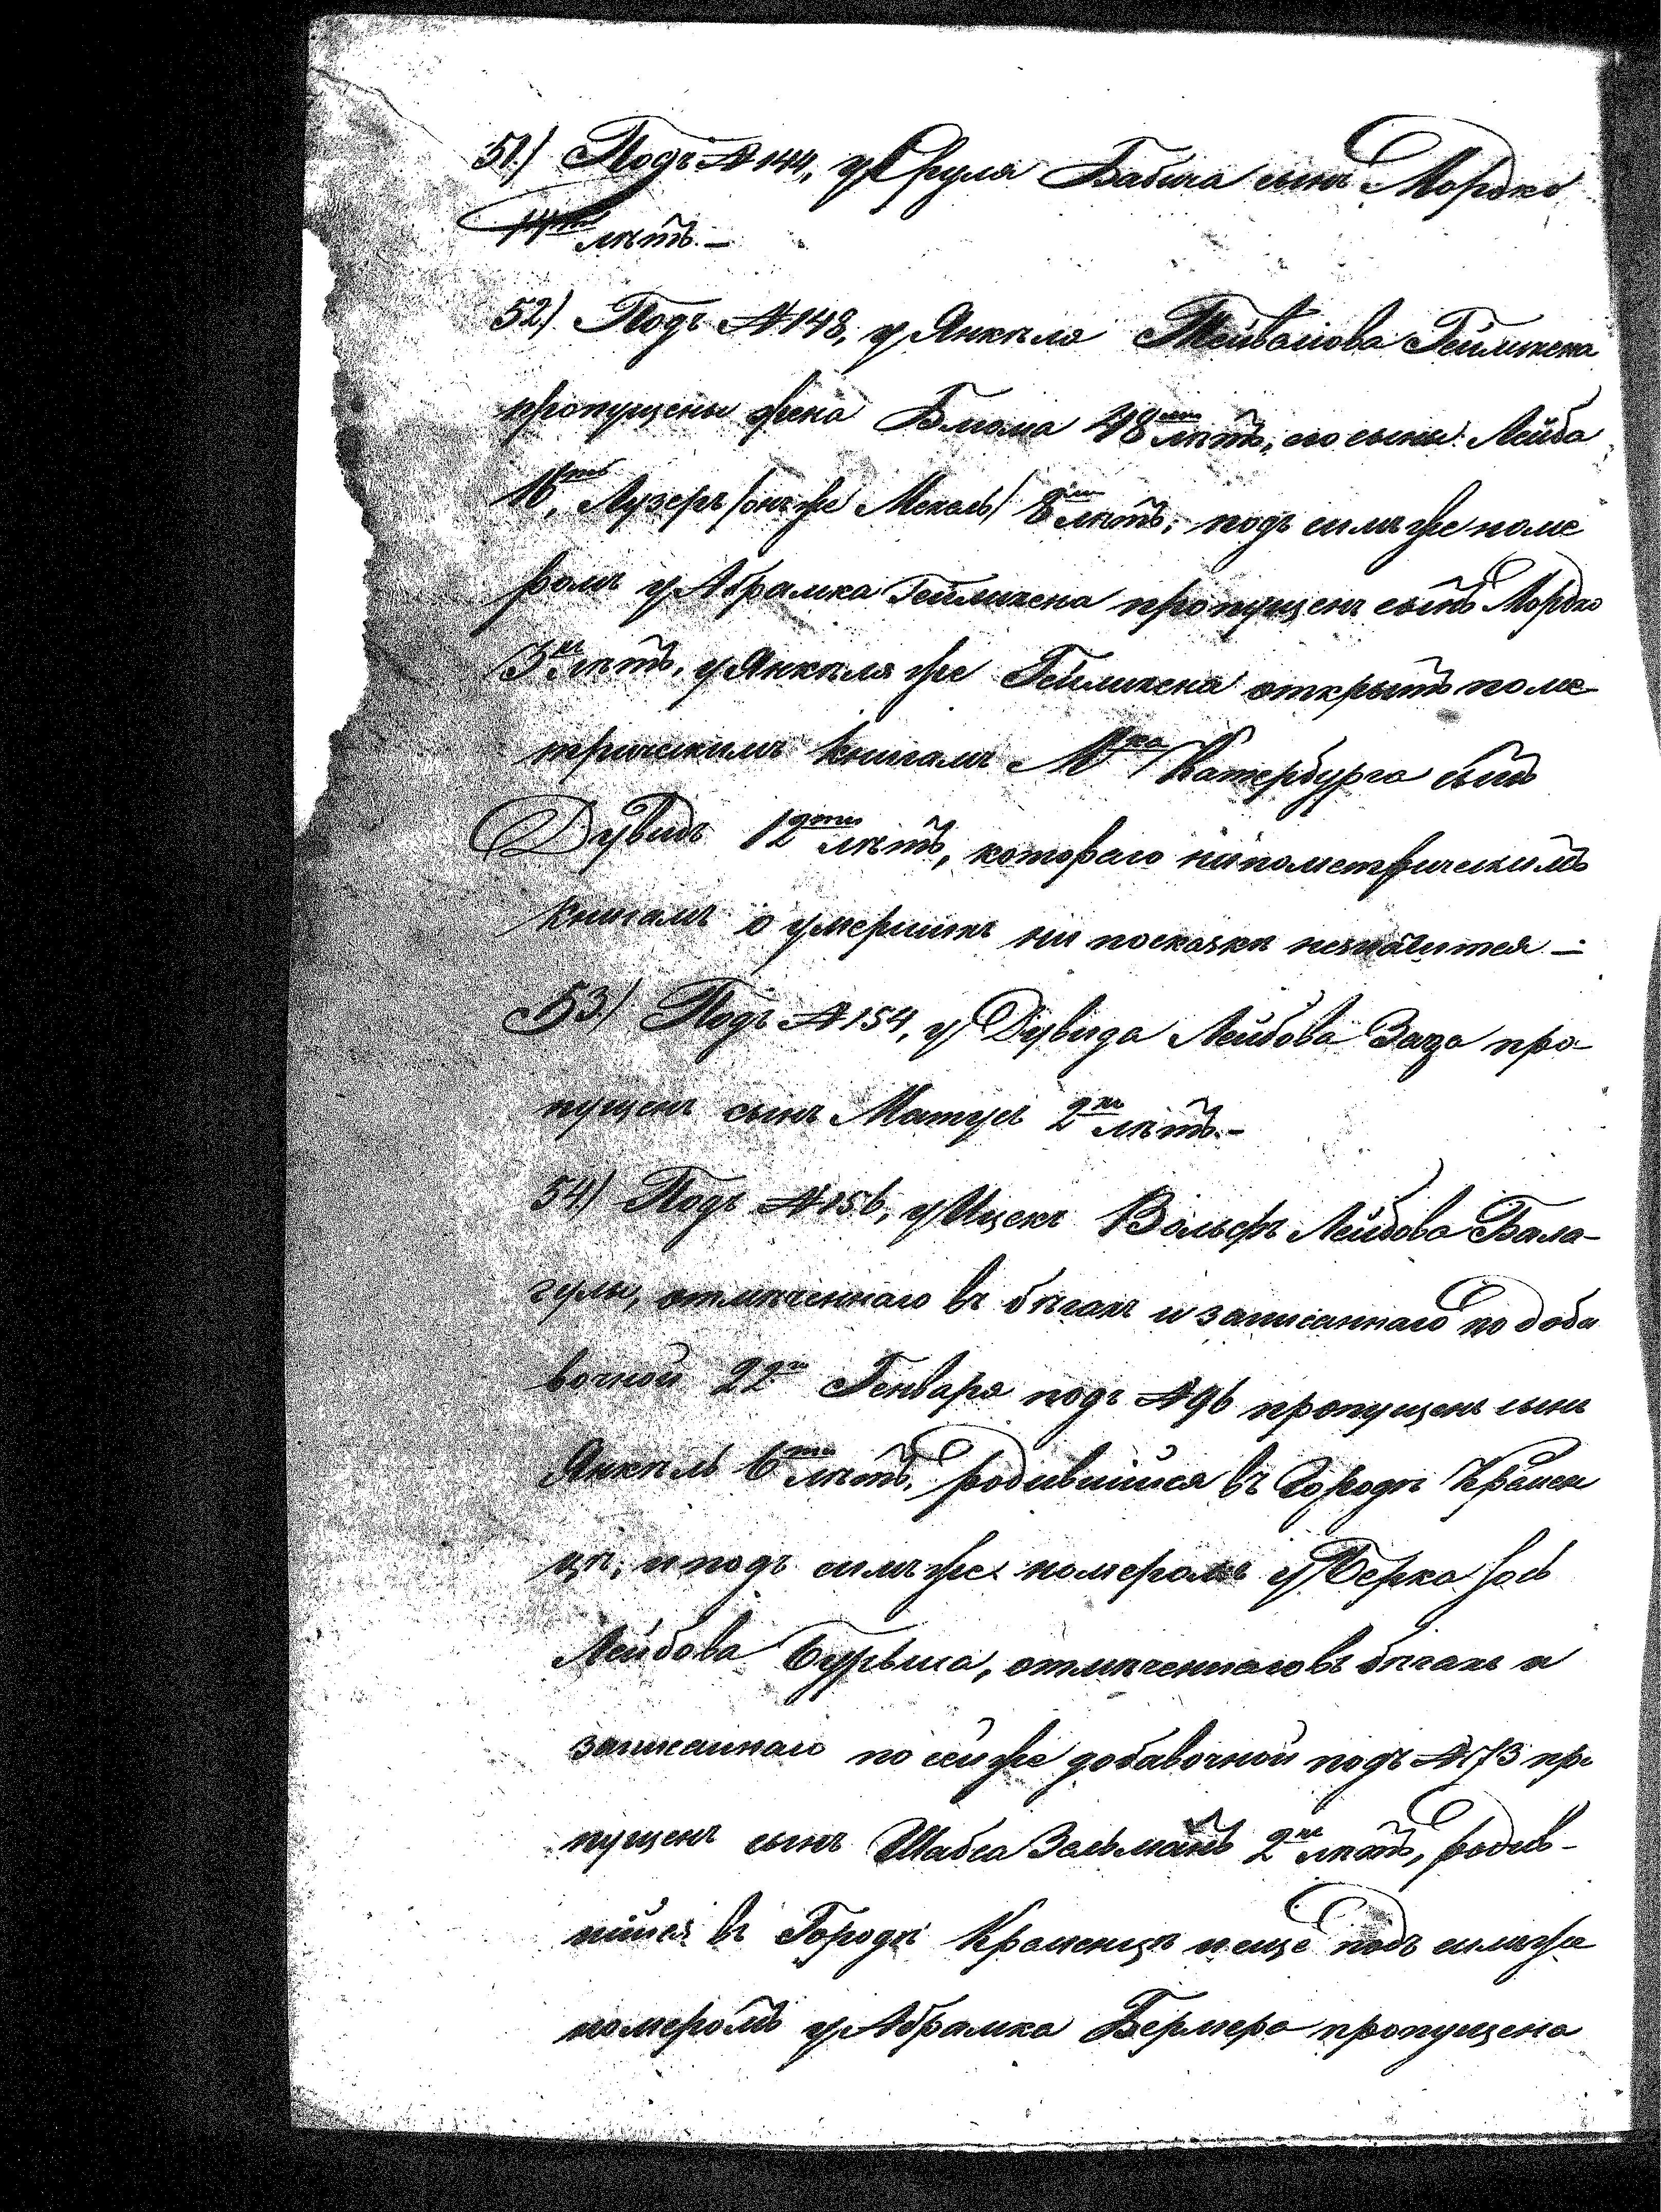 51) Подъ №144, у Сруля Бабича сынъ Мордко
14ти лѣтъ.—
52) Подъ №148, у Янкеля Лейвамова Геймикена
пропущены жена Блюма 48ми лѣтъ, его сыны: Лейба
16ть, Лузеръ /онъ же Мекель/ 8ми лѣтъ; подъ симъ же номе
ромъ у Абрамка Геймикена пропущенъ сынъ Мордко
3хъ лѣтъ, у Янкеля же Геймикена открытъ по ме-
трическимъ книгамъ Мка Катербурга сынъ
Дувидъ 12ти лѣтъ, котораго ни по метрическимъ
книгамъ о умершихъ ни по сказкѣ незначится —
53) Подъ №154, у Дувида Лейбова Заца про-
пущенъ сынъ Матусъ 2хъ лѣтъ.—
54) Подъ №156, у Ицекъ Вольфъ Лейбова Бала-
гулы, отмѣченнаго въ бѣгахъ и записаннаго по доба
вочной 22й Генваря подъ №96 пропущенъ сынъ
Янкель 6ти лѣтъ, родившійся въ Городѣ Кремен
цѣ; и подъ симъ же номеромъ у Берка Іось
Лейбова отмѣченнаго въ бѣгахъ и
записаннаго по сей же добавочной подъ №173 про
пущенъ сынъ Шабса Зельманъ 2хъ лѣтъ, родив-
шійся въ Городѣ Кременцѣ и еще подъ симъ же
номеромъ у Абрамка Бермера пропущена